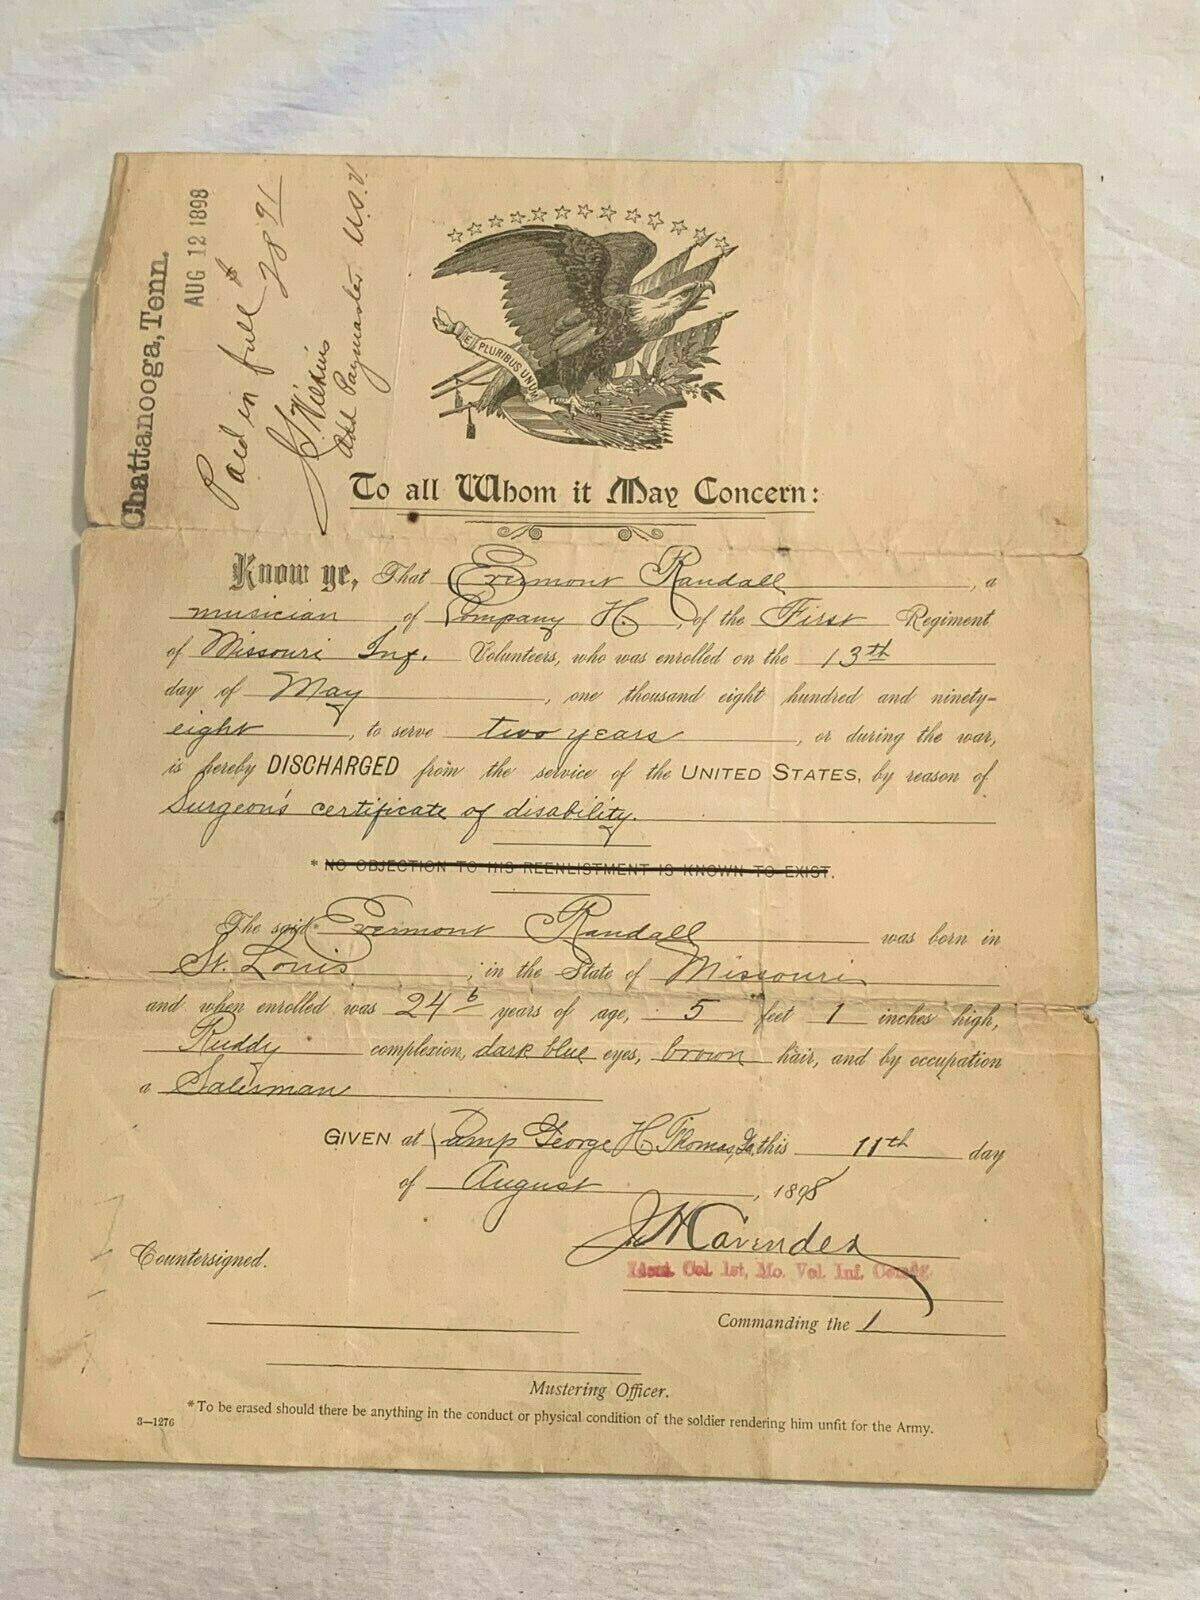 Chattanooga, Tenn.
AUG 12 1898
Paid in full $
28 91
Wilkins
Paymaster U.S.V.
E PLURIBUS UNUM
To all Whom it May Concern:
Know ye, That Evermont Randall, a
musician of Company H., of the First Regiment
of Missouri Inf. Volunteers, who was enrolled on the 13th
day of May, one thousand eight hundred and ninety-
eight, to serve two years, or during the war,
is hereby DISCHARGED from the service of the UNITED STATES, by reason of
Surgeon's certificate of disability.
* NO OBJECTION TO HIS REENLISTMENT IS KNOWN TO EXIST.
The said Evermont Randall was born in
St. Louis, in the State of Missouri
and when enrolled was 24 years of age, 5 feet 1 inches high,
Ruddy complexion, dark blue eyes, brown hair, and by occupation
a Salesman
GIVEN at Camp George H. Thomas, Ga. this 11th day
of August, 1898
Countersigned.
Col. 1st, Mo. Vol. Inf. Comdg.
Commanding the 1
Mustering Officer.
*To be erased should there be anything in the conduct or physical condition of the soldier rendering him unfit for the Army.
3—1276